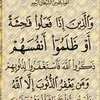 وَالَّذِينَ إِذَا فَعَلُوا فَاحِشَةً
أَوْ ظَلَمُوا أَنْفُسَهُمْ
ذَكَرُوا اللَّهَ فَاسْتَغْفَرُوا لِذُنُوبِهِمْ
وَمَنْ يَغْفِرُ الذُّنُوبَ إِلَّا اللَّهُ